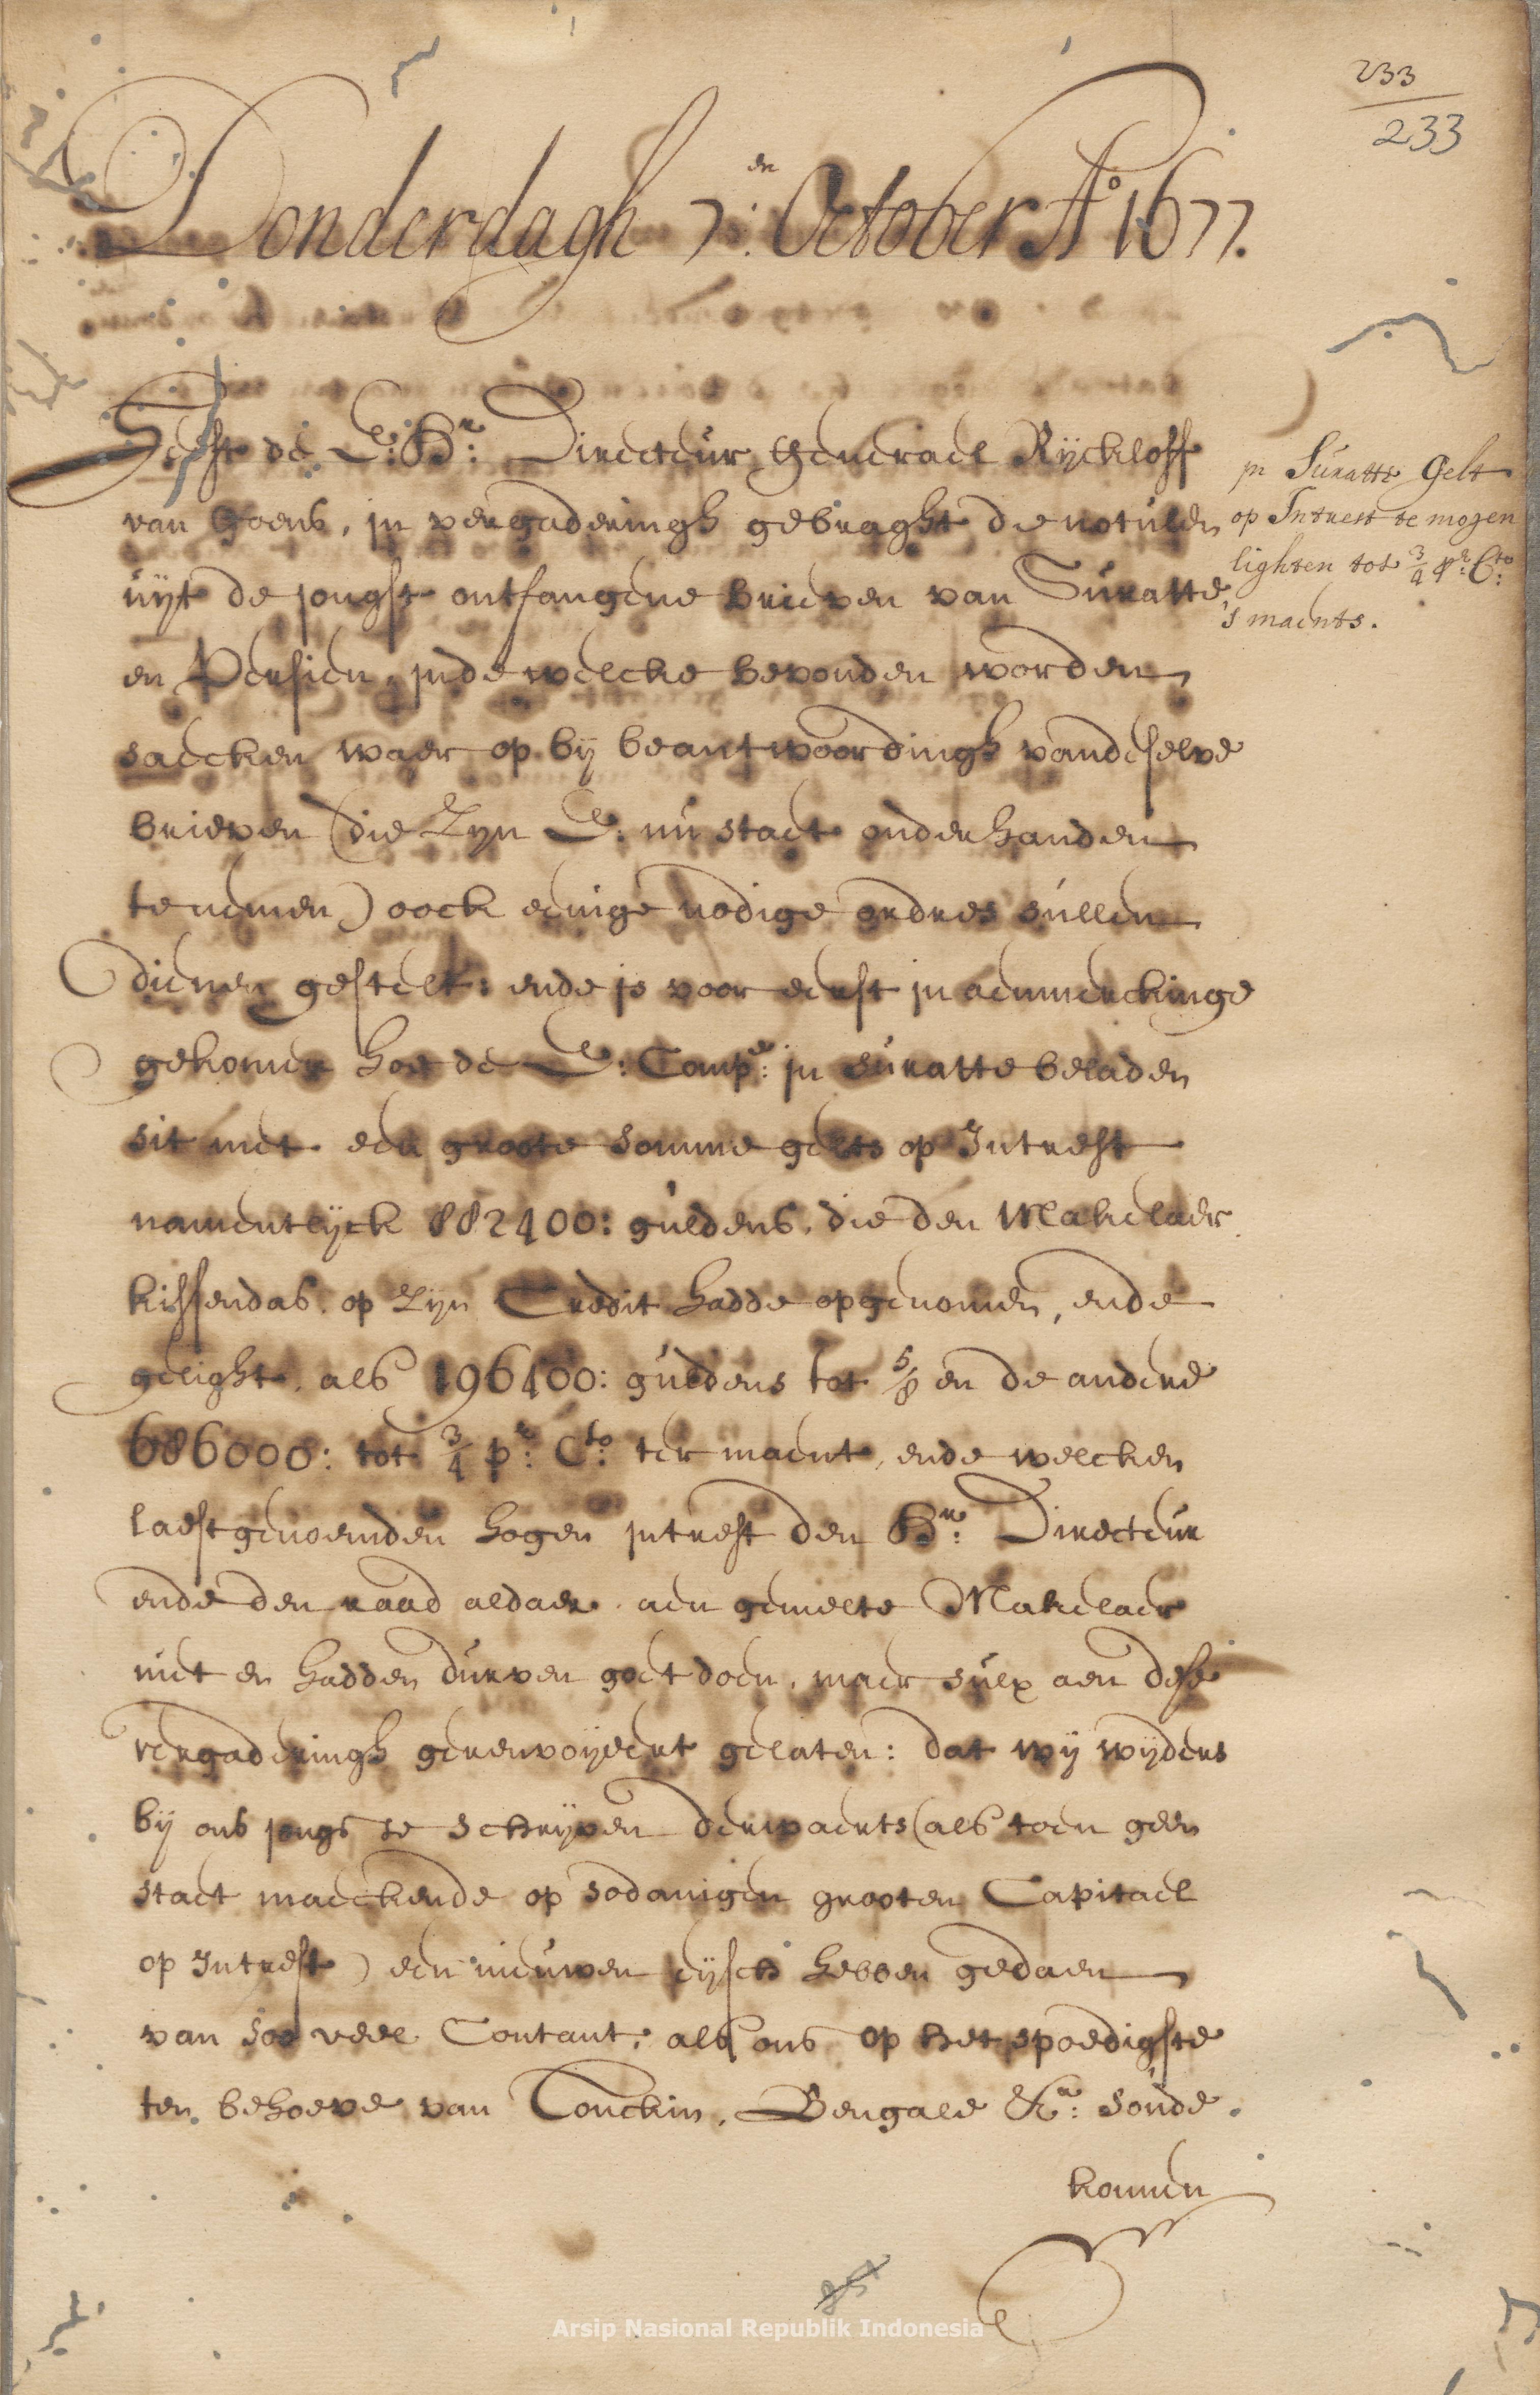 233
233
Donderdagh 7:en October Ao 1677.
Heeft de E: Hr: Directeur generael Rijckloff
van Goens, in vergaderingh gebraght de notulen
uijt de jongst ontfangene brieven van Suratte
en Persien, inde welcke bevonden worden
saecken waer op bij beantwoordingh vandeselve
brieven (die Zijn E: nu staet onderhanden
te nemen) oock eenige nodige ordres sullen
dienen gestelt: ende is voor eerst in aenmerckinge
gekomen hoe de E: Compe: in suratte beladen
sit met een groote somme gelts op Intrest
namentlijck 882400: guldens, die den Makelaer
kissendas, op Zijn Credit hadde opgenomen, ende
gelight, als 196400: guldens tot 5/8 en de andere
686000: tot 3/4 pr: Cto: ter maent, ende welcken
laestgenoemden hogen intrest den Hr: Directeur
ende den raad aldaer, aen gemelte Makelaer
niet en hadden durven goet doen, maer sulx aen dese
vergaderingh gerenvoijeert gelaten: dat wij wijders
bij ons jongs te schrijven derwaerts (als toen geen
staet maeckende op sodanigen grooten Capitael
op Intrest) een nieuwen eijsch hebben gedaen
van soo veel Contant, als ons op het spoedigste
ten behoeve van Tonckin, Bengale &a: soude
komen
in Suratte Gelt
op Intrest te mogen
lighten tot 3/4 pr: Cto:
's maents.
Arsip Nasional Republik Indonesia